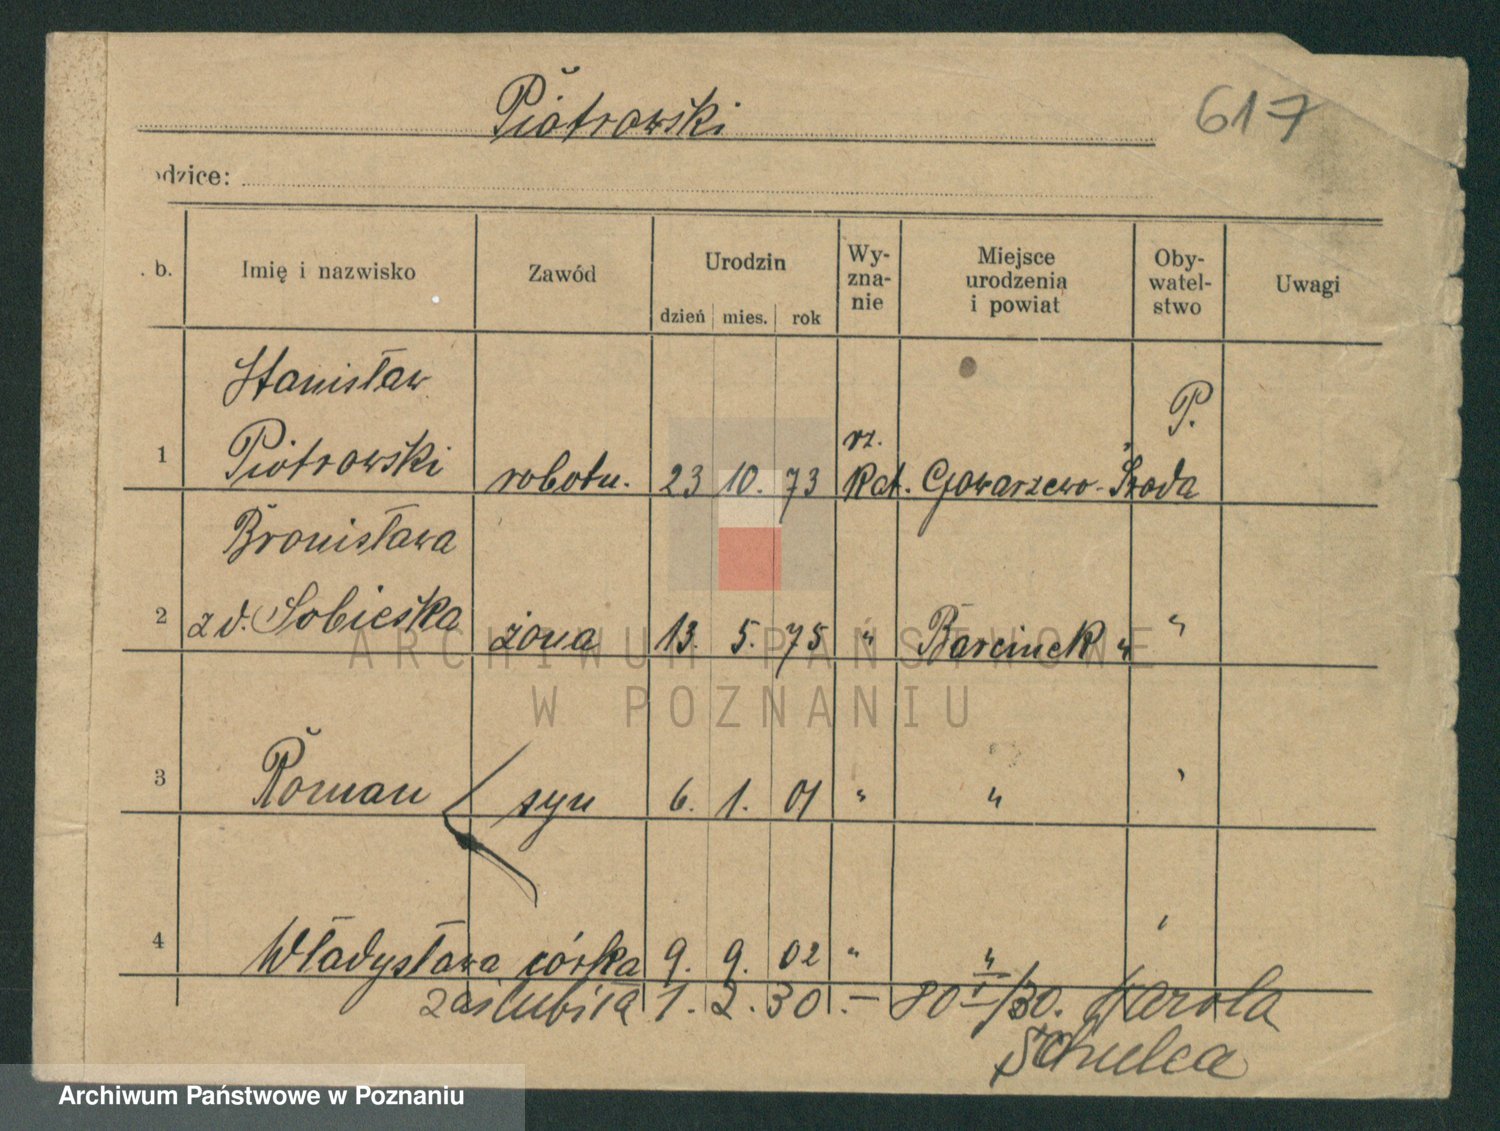 Piotrowski
617
odzice:
. b. Imię i nazwisko Zawód Urodzin Wy-zna-nie Miejsce urodzenia i powiat Oby-watel-stwo Uwagi
dzień mies. rok
Stanisław
P.
1 Piotrowski robotn. 23 10. 73 rz. Kat. Gowarzewo - Środa
Bronisława
2 z d. Sobieska żona 13. 5. 75 " Barcinek " "
3 Roman syn 6. 1. 01 " " "
4 Władysława córka 9. 9. 02 " " "
zaślubiła 1. 2. 30. – 80 /30. Karola
Schulca
ARCHIWUM PAŃSTWOWE
W POZNANIU
Archiwum Państwowe w Poznaniu